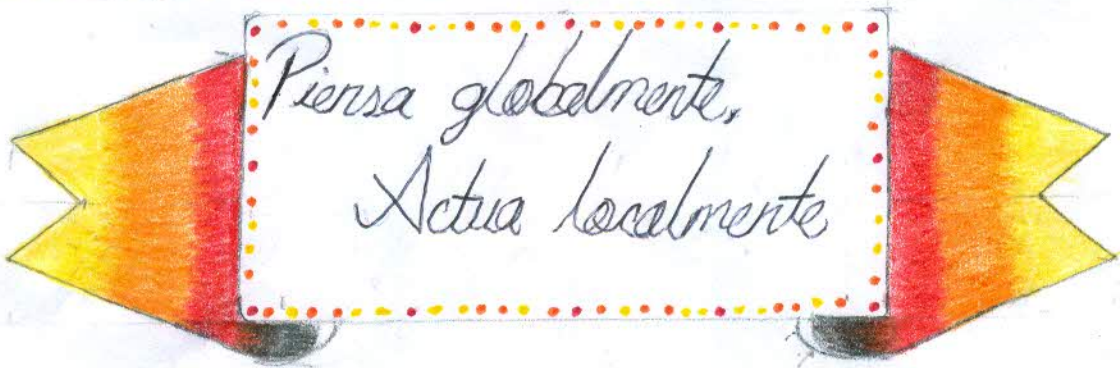 Piensa globalmente,
Actua localmente